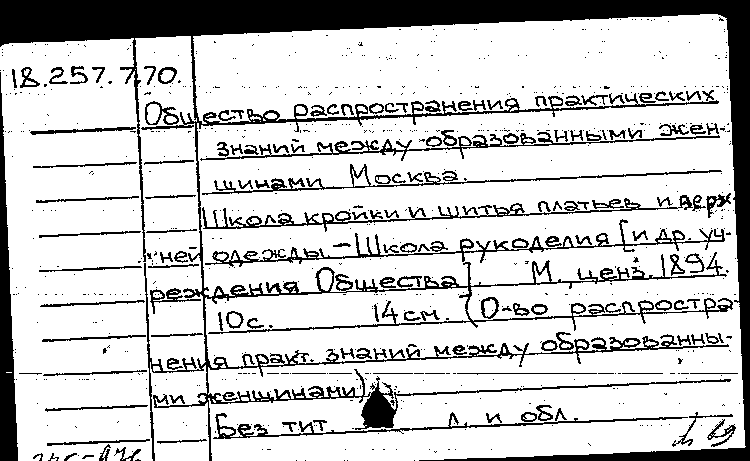 18.257.7.70.
Общество распространения практических
знаний между образованными жен-
щинами Москва.
Школа кройки и шитья платьев и верх-
ней одежды. - Школа рукоделия [и др. уч-
реждения Общества]. М., ценз. 1894.
10с. 14см. (О-во распростра-
нения практ. знаний между образованны-
ми женщинами)
Без тит. л. и обл.